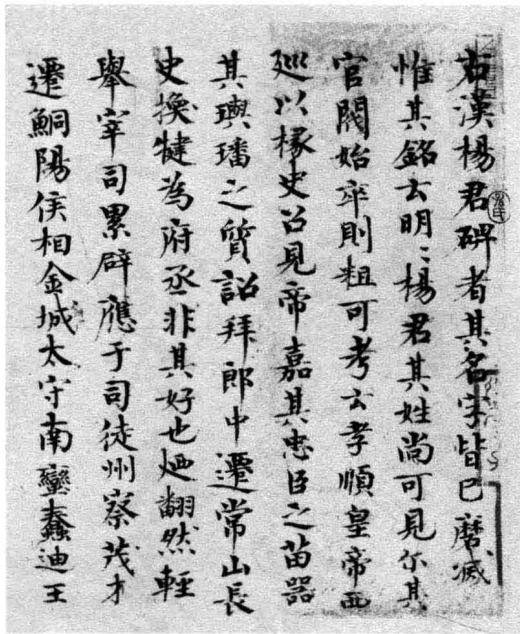 右漢楊君碑者其名字皆已磨滅
惟其銘云明〻楊君其姓尚可見尔其
官閥始卒則粗可考云孝順皇帝西
廵以掾史召見帝嘉其忠臣之苗器
其璵璠之質詔拜郎中遷常山長
史換犍為府丞非其好也迺翻然輕
舉宰司累辟應于司徒州察茂才
遷鮦陽侯相金城太守南蠻蠢迪王